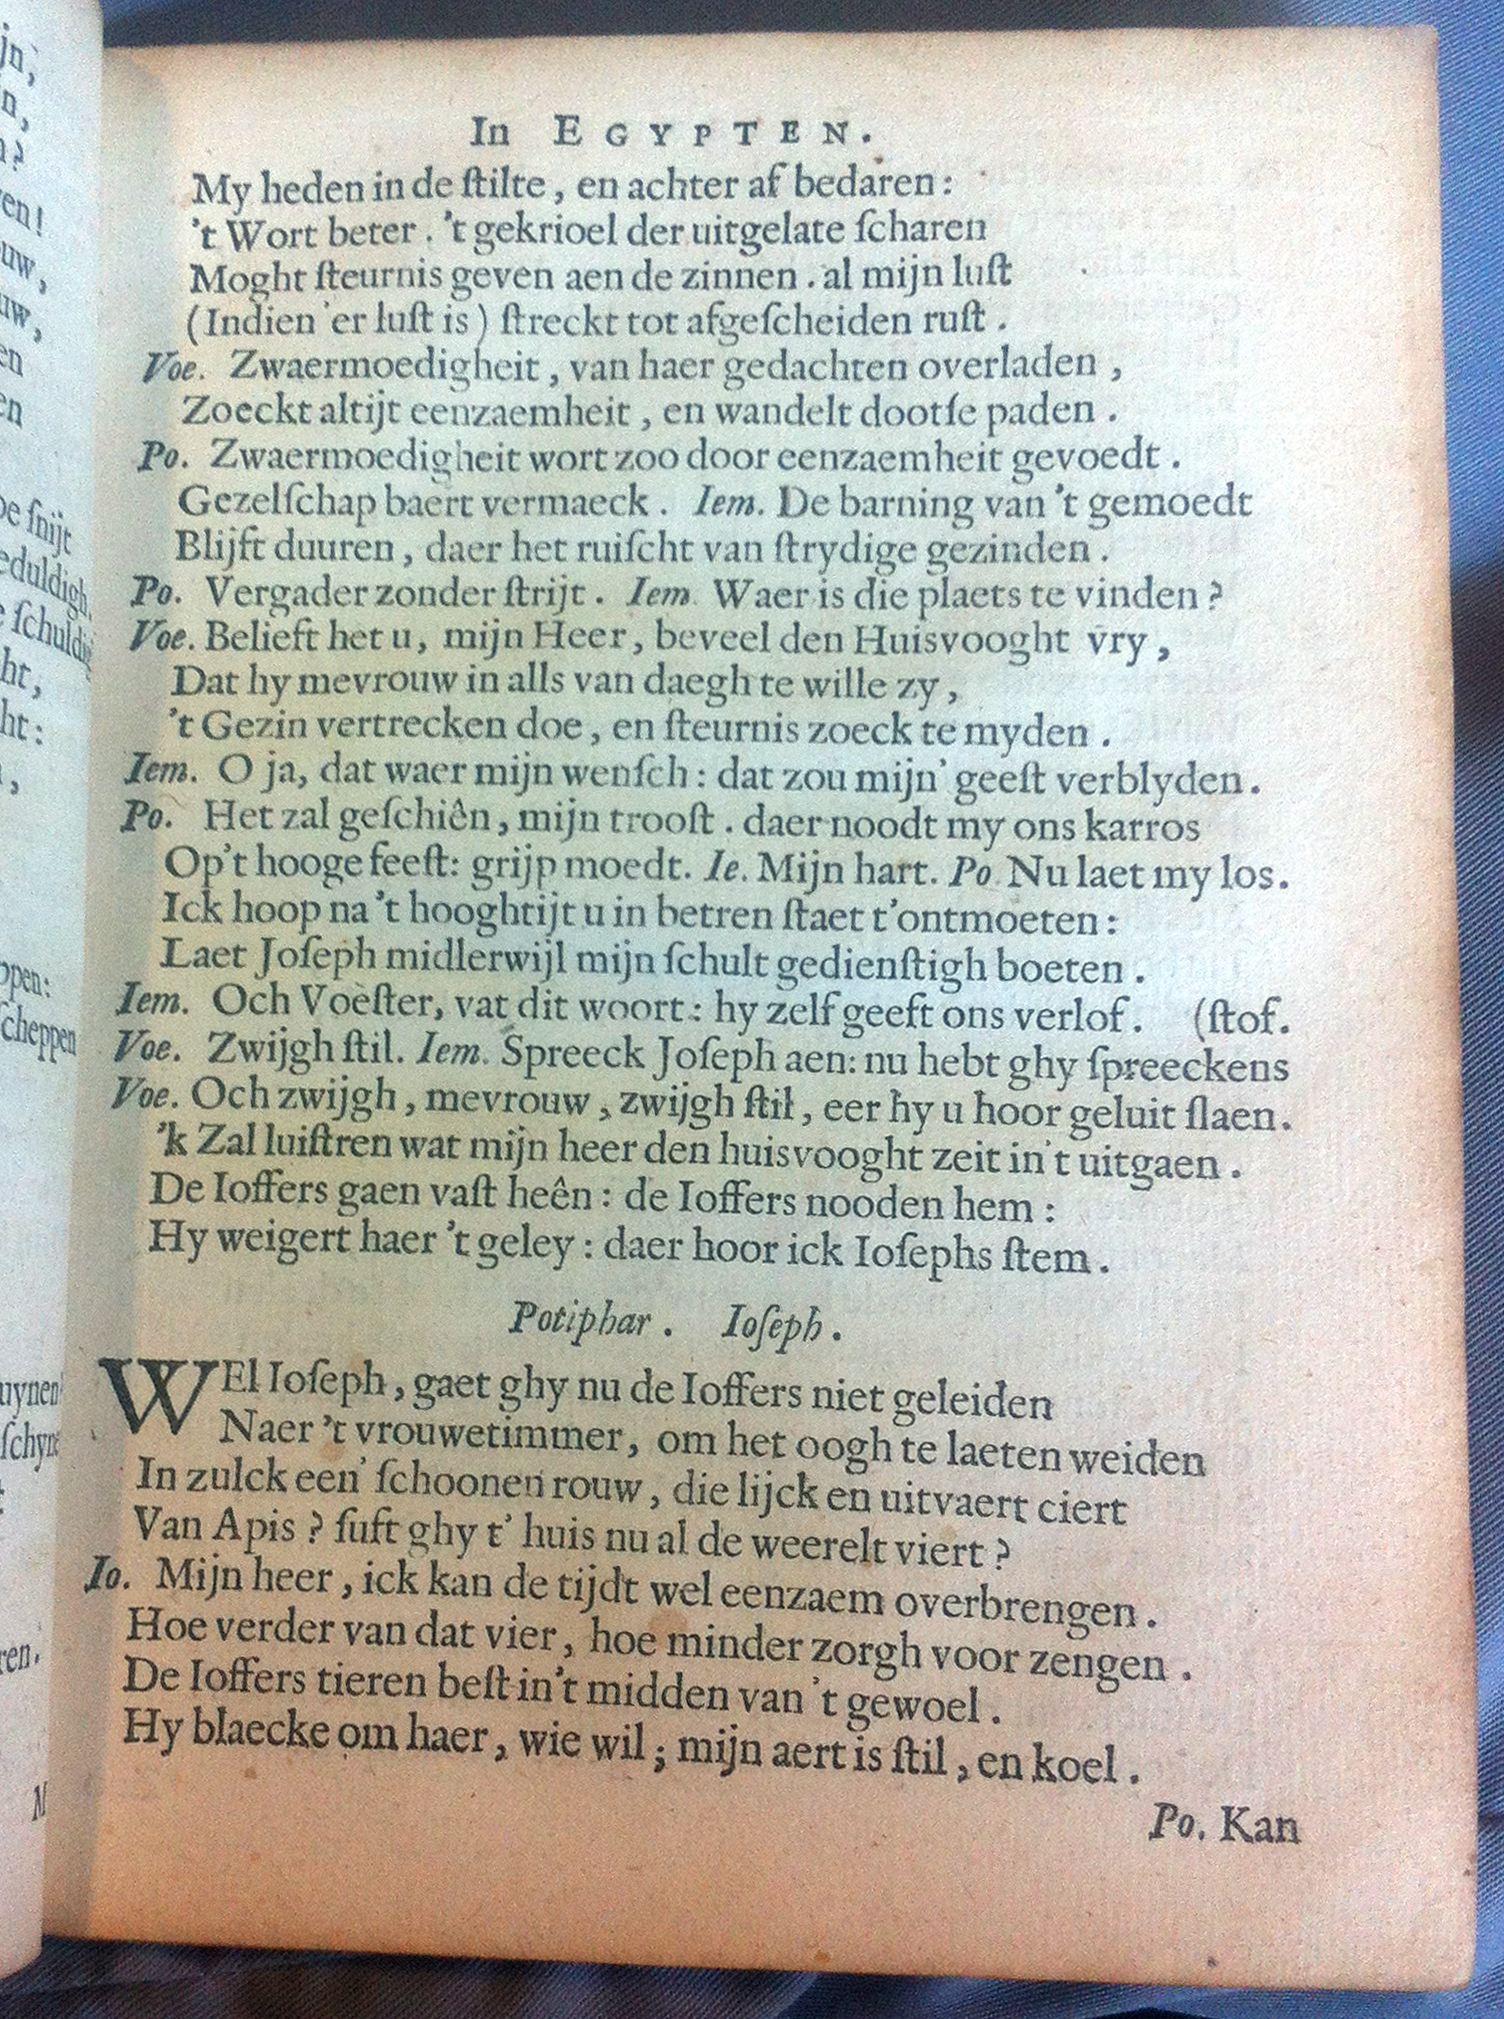 In EGYPTEN.
My heden in de ſtilte, en achter af bedaren:
't Wort beter. 't gekrioel der uitgelate ſcharen
Moght ſteurnis geven aen de zinnen. al mijn luſt
(Indien 'er luſt is) ſtreckt tot afgeſcheiden ruſt.
Voe. Zwaermoedigheit, van haer gedachten overladen,
Zoeckt altijt eenzaemheit, en wandelt dootſe paden.
Po. Zwaermoedigheit wort zoo door eenzaemheit gevoedt.
Gezelſchap baert vermaeck. Iem. De barning van 't gemoedt
Blijft duuren, daer het ruiſcht van ſtrydige gezinden.
Po. Vergader zonder ſtrijt. Iem. Waer is die plaets te vinden?
Voe. Belieft het u, mijn Heer, beveel den Huisvooght vry,
Dat hy mevrouw in alls van daegh te wille zy,
't Gezin vertrecken doe, en ſteurnis zoeck te myden.
Iem. O ja, dat waer mijn wenſch: dat zou mijn' geeſt verblyden.
Po. Het zal geſchiên, mijn trooſt. daer noodt my ons karros
Op't hooge feeſt: grijp moedt. Ie. Mijn hart. Po. Nu laet my los.
Ick hoop na 't hooghtijt u in betren ſtaet t'ontmoeten:
Laet Joſeph midlerwijl mijn ſchult gedienſtigh boeten.
Iem. Och Voeſter, vat dit woort: hy zelf geeft ons verlof. (ſtof.
Voe. Zwijgh ſtil. Iem. Spreeck Joſeph aen: nu hebt ghy ſpreeckens
Voe. Och zwijgh, mevrouw, zwijgh ſtil, eer hy u hoor geluit ſlaen.
'k Zal luiſtren wat mijn heer den huisvooght zeit in't uitgaen.
De Ioffers gaen vaſt heên: de Ioffers nooden hem:
Hy weigert haer 't geley: daer hoor ick Ioſephs ſtem.
Potiphar. Ioſeph.
WEl Ioſeph, gaet ghy nu de Ioffers niet geleiden
Naer 't vrouwetimmer, om het oogh te laeten weiden
In zulck een' ſchoonen rouw, die lijck en uitvaert ciert
Van Apis? ſuft ghy t' huis nu al de weerelt viert?
Io. Mijn heer, ick kan de tijdt wel eenzaem overbrengen.
Hoe verder van dat vier, hoe minder zorgh voor zengen.
De Ioffers tieren beſt in't midden van 't gewoel.
Hy blaecke om haer, wie wil; mijn aert is ſtil, en koel.
Po. Kan